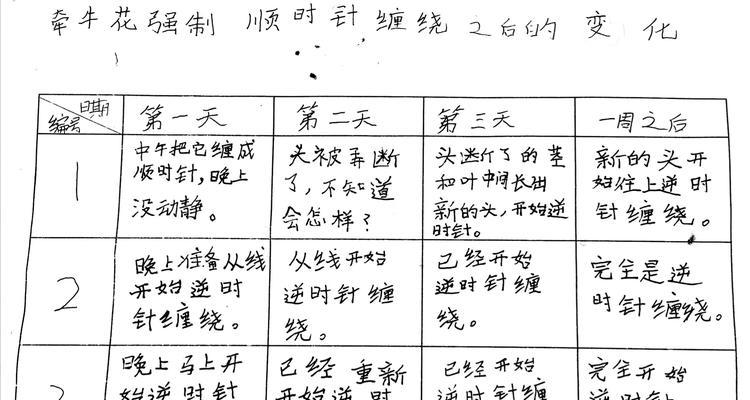 牵牛花强制 顺时针缠绕之后的 变 化
日期
编号
第一天
第二天
第三天
一周之后
1
中午把它缠成
顺时针,晚上
没动静。
头被弄断
了,不知道
会怎样?
头断了的茎
和叶中间长出
新的头,开始逆
时针。
新的头开
始往上逆时
针缠绕。
2
晚上准备从线
开始逆时
针缠绕。
从线开始
逆时针缠
绕。
已经开始
逆时针缠
绕。
完全是逆
时针缠绕。
晚上马上开
始逆时针
已经重新
开始逆时
已经开始
逆时针缠
完全开始
逆时针